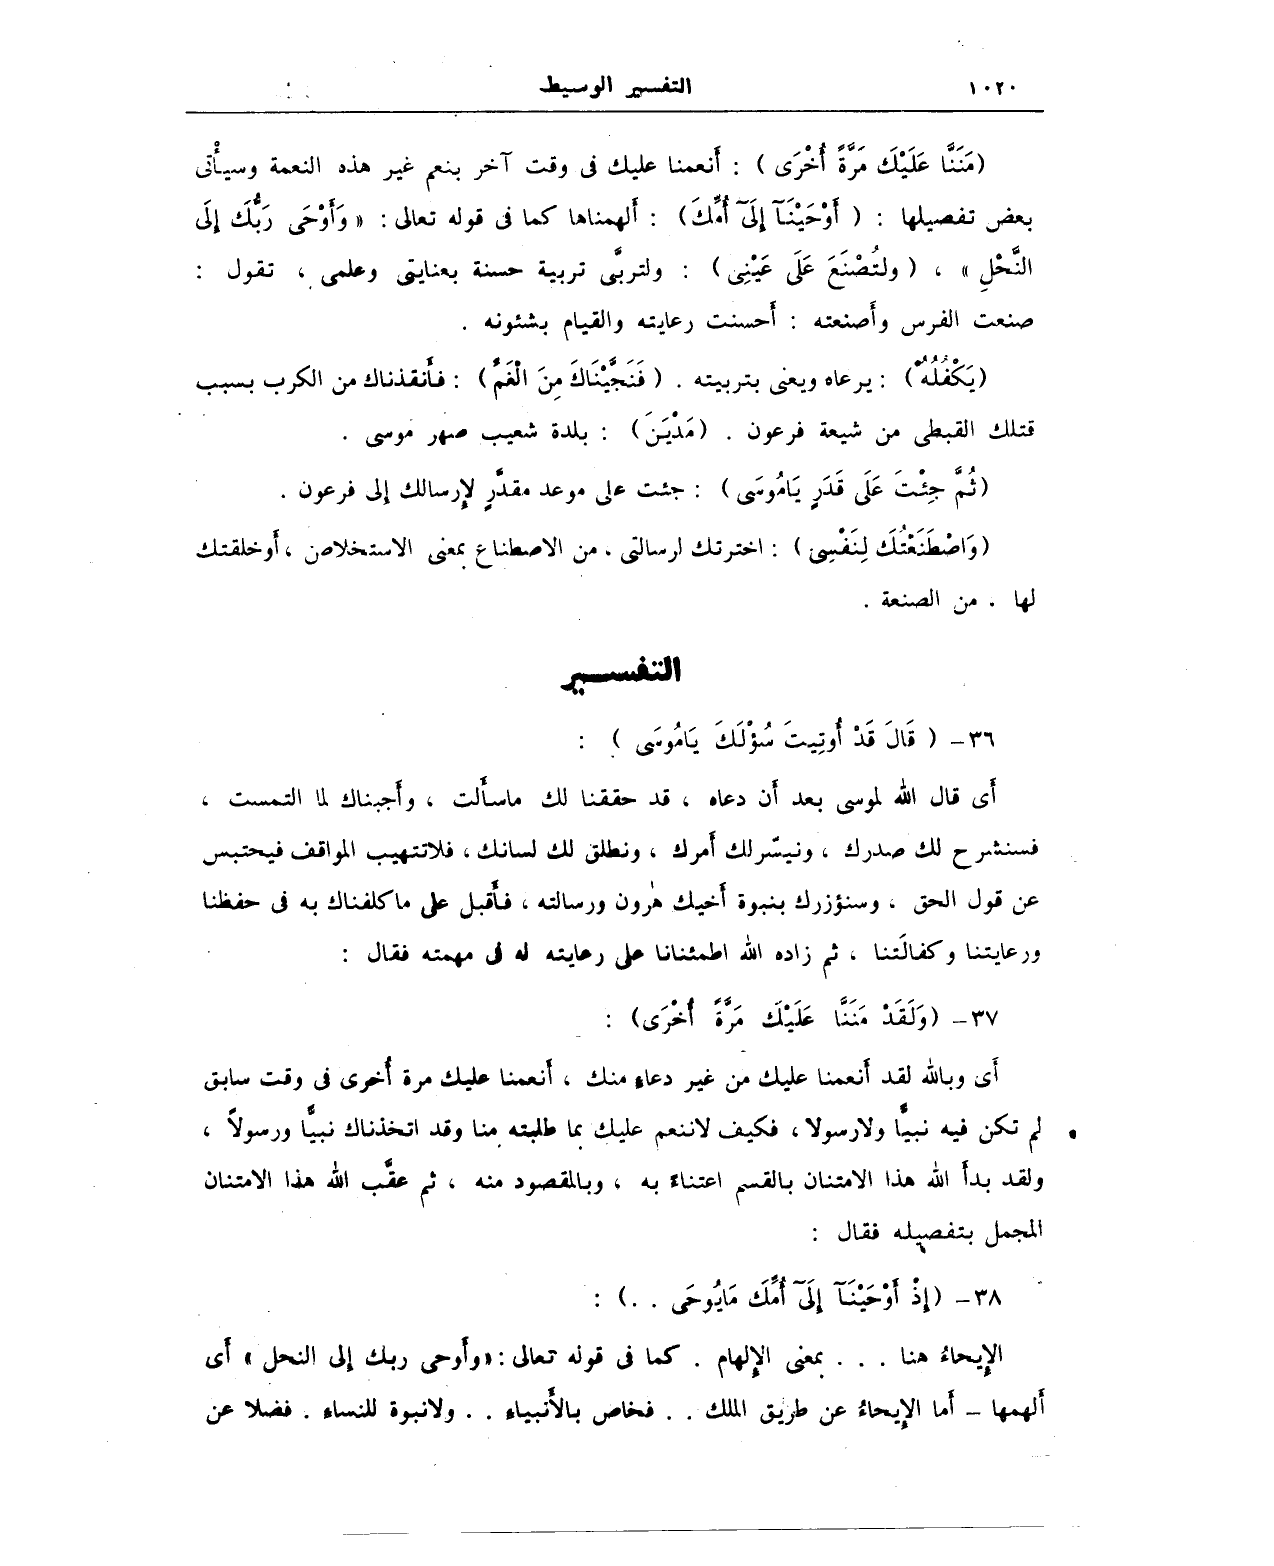 ١٠٢٠ التفسير الوسيط
(مَنَنَّا عَلَيْكَ مَرَّةً أُخْرَى) : أَنعمنا عليك فى وقت آخر بنعم غير هذه النعمة وسيأْتى
بعض تفصيلها : (أَوْحَيْنَآ إِلَىٰٓ أُمِّكَ) : أَلهمناها كما فى قوله تعالى : « وَأَوْحَى رَبُّكَ إِلَى
النَّحْلِ » ، (ولتُصْنَعَ عَلَى عَيْنِى) : ولتربَّى تربية حسنة بعنايتى وعلمى ، تقول :
صنعت الفرس وأَصنعته : أَحسنت رعايته والقيام بشئونه .
(يَكْفُلُهُ) : يرعاه ويعنى بتربيته . (فَنَجَّيْنَاكَ مِنَ الْغَمِّ) : فأَنقذناك من الكرب بسبب
قتلك القبطى من شيعة فرعون . (مَدْيَنَ) : بلدة شعيب صهر موسى .
(ثُمَّ جِئْتَ عَلَى قَدَرٍ يَامُوسَى) : جئت على موعد مقدَّرٍ لإِرسالك إلى فرعون .
(وَاصْطَنَعْتُكَ لِنَفْسِى) : اخترتك لرسالتى . من الاصطناع بمعنى الاستخلاص ، أَوخلقتك
لها . من الصنعة .
التفسير
٣٦- ( قَالَ قَدْ أُوتِيتَ سُؤْلَكَ يَامُوسَى ) :
أَى قال الله لموسى بعد أَن دعاه ، قد حققنا لك ماسأَلت ، وأَجبناك لما التمست ،
فسنشرح لك صدرك ، ونيسّرلك أَمرك ، ونطلق لك لسانك ، فلاتتهيب المواقف فيحتبس
عن قول الحق ، وسنؤزرك بنبوة أَخيك هٰرون ورسالته ، فأَقبل على ماكلفناك به فى حفظنا
ورعايتنا وكفالَتنا ، ثم زاده الله اطمئنانا على رعايته له فى مهمته فقال :
٣٧- (وَلَقَدْ مَنَنَّا عَلَيْكَ مَرَّةً أُخْرَى) :
أَى وبالله لقد أَنعمنا عليك من غير دعاءٍ منك ، أَنعمنا عليك مرة أُخرى فى وقت سابق
لم تكن فيه نبيًّا ولارسولا ، فكيف لاننعم عليك بما طلبته منا وقد اتخذناك نبيًّا ورسولاً ،
ولقد بدأَ الله هذا الامتنان بالقسم اعتناءً به ، وبالمقصود منه ، ثم عقَّب الله هذا الامتنان
المجمل بتفصيله فقال :
٣٨- (إِذْ أَوْحَيْنَآ إِلَىٰٓ أُمِّكَ مَايُوحَى . .) :
الإِيحاءُ هنا . . . بمعنى الإِلهام . كما فى قوله تعالى : «وأَوحى ربك إلى النحل » أَى
أَلهمها – أَما الإِيحاءُ عن طريق الملك . . فخاص بالأَنبياء . . ولانبوة للنساء . فضلا عن